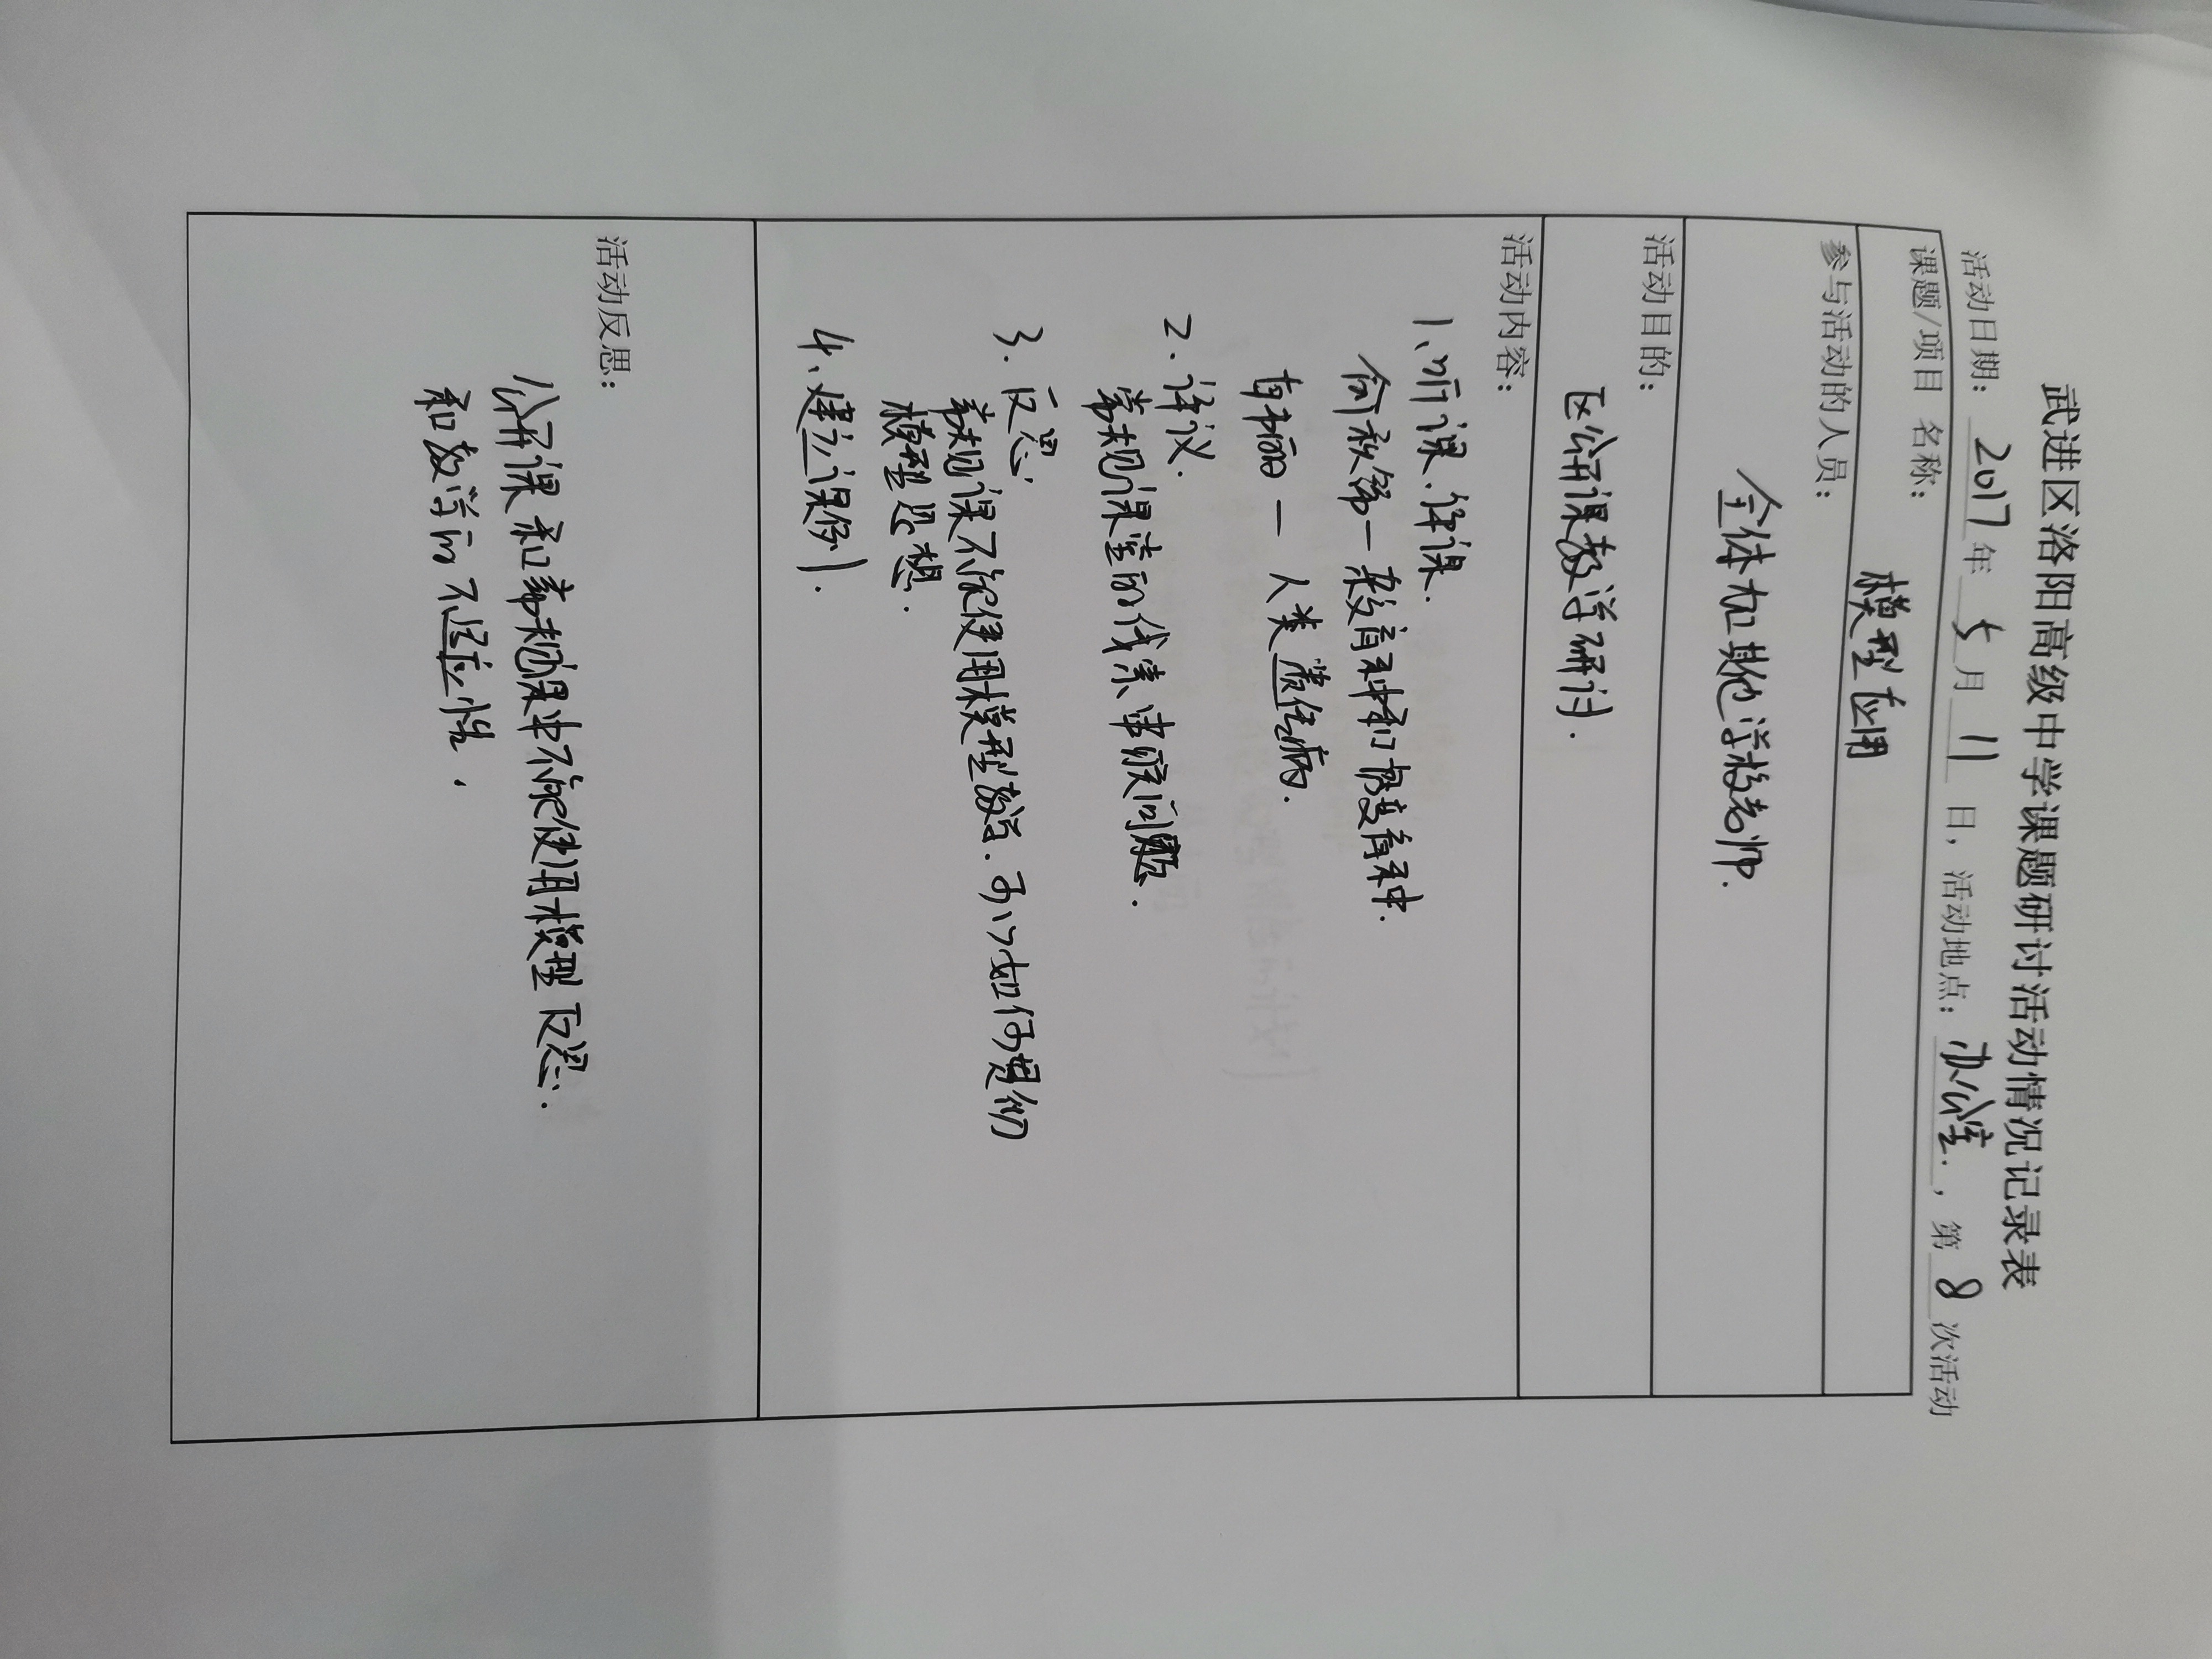 武进区洛阳高级中学课题研讨活动情况记录表
活动日期：2017年5月11日，活动地点：办公室.，第8次活动
课题/项目 名称：模型应用
参与活动的人员：
全体加其他学校老师.
活动目的：
区公开课教学研讨.
活动内容：
1、听课、评课.
一杂交育种和诱变育种.
— 人类遗传病.
2. 评议.
常规课堂的线索串联问题.
3. 反思:
常规课不能使用模型教学.
模型思想.
4、建立课例.
活动反思：
公开课和常规课中不能使用模型反思.
和教学的不适应性.